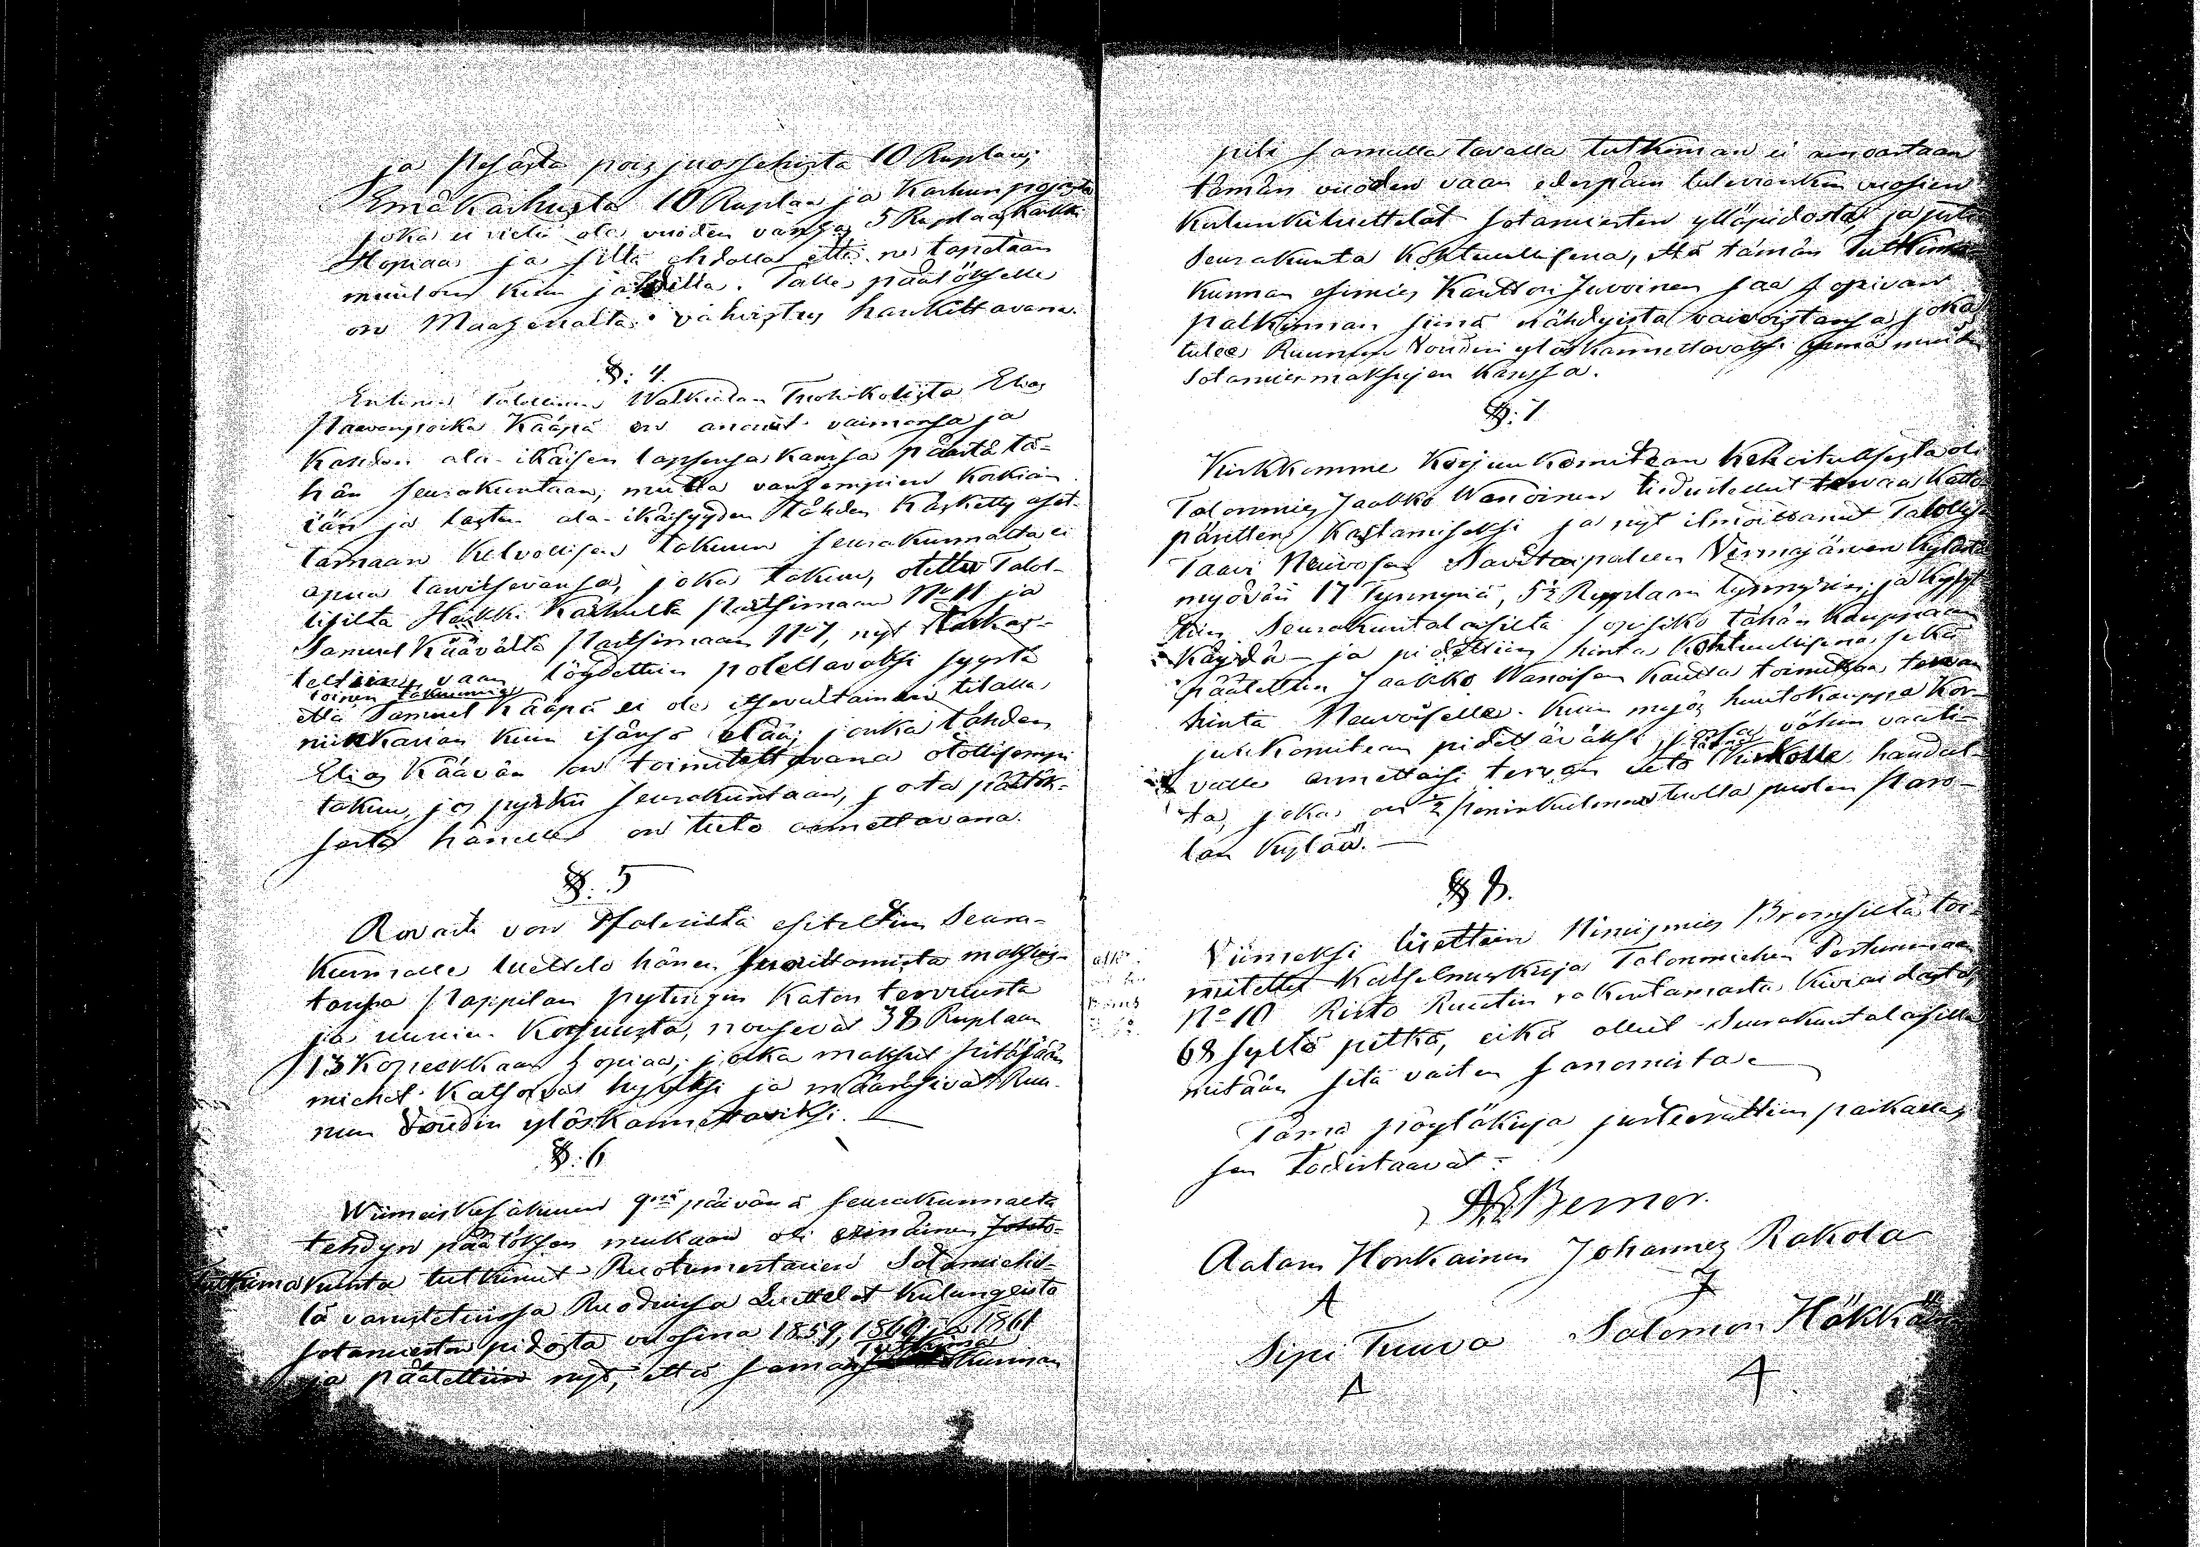 ja Pesästä pois juossehista 10 Ruplaa;
Emä Karhusta 10 Ruplaa ja Karhun pojasta
joka ei vielä ole vuoden vanha, 5 Ruplaa kaikki
Hopiaa ja sillä ehdolla että ne tapetaan
muuton kuin jahdilla. Tälle päätökselle
on Maaherralta vahvistus hankittavana.
§: 4.
Entinen Talollinen Walkialan Tuohikotista Elias
Paavonpoika Kääpä on anonut vaimonsa ja
Kahden ala-ikäisen lapsensa kanssa päästä tä-
hän seurakuntaan; mutta vanhempien korkian
iän ja lasten ala-ikäisyyden tähden käsketty aset-
tamaan kelvollisen takuun seurakunnalta ei
apua tarvitsevansa, joka takuu, otettu Talol-
lisilta Heikki Karhulta Partsimaan No 11 ja
Samuel Käävältä Partsimaan No 7, nyt tarkas-
tettiin, vaan löydettiin potettavaksi syystä
toinen takuumies
että Samuel Kääpä ei ole itsevaltainen tilalla
niinkauan kuin isänsä elää; jonka tähden
Elias Käävän on toimitettavana otollisempi
takuu, jos pyrkii seurakuntaan, josta päätök-
sestä hänelle on tieto annettavana.
§. 5
Rovasti von Pfalerilta esiteltiin Seura-
kunnalle luettelo hänen suorittamista maksois-
tansa Pappilan pytingin katon tervuusta
ja uunin korjuusta, nousevat 38 Ruplaan
13 Kopeekkaan hopiaa; jotka maksut pitäjään
miehet katsovat hyväksi ja määräsivät Ruu-
nun Voudin ylöskannettaviksi.
§. 6
Wiimeis Kesäkuun 9nä päivänä seurakunnalta
tehdyn päätöksen mukaan oli erinäinen Johto-
tutkimakunta tutkinut Ruotumestarien Sotamiehil-
lä varustetuissa Ruoduissa Luettelot kulungeista
sotamiesten pidosta vuosina 1859, 1860 ja 1861
tutkima
ja päätettiin nyt, että saman kunnan
piti samalla tavalla tutkiman ei ainoastaan
tämän vuoden vaan edespäin tulevienkin vuosien
Kulunkiluettelot sotamiesten ylläpidosta, ja piti
Seurakunta kohtuullisena, että tämän Tutkima-
kunnan esimies Kanttori Juvoinen saa sopivan
palkinnon siinä nähdyistä vaivoistansa, joka
tulee Ruunun Voudin ylöskannettavaksi ynnä muiden
Sotamiesmaksujen kanssa.
§. 7
Kirkkomme Korjuu Komitean kehoituksesta oli
Talonmies Jaakko Wanoinen tiedustellut tervaa katto-
päreitten kastamiseksi ja nyt ilmoittanut Talollisen
Taavi Neuvosen Savitaipaleen Vermajärven kylästä
myövän 17 Tynnyriä, 5½ Ruplaan tynnyrin; ja kysyt-
tiin Seurakuntalaisilta sopisiko tähän kauppaan
käydä – ja pidettiin hinta kohtuullisena, sekä
päätettiin Jaakko Wanoisen kautta toimittaa tervan
hinta Neuvoiselle. Kuin myös huutokauppa Kor-
juukomitean pidettäväksi, jossa vähin vaati-
valle annettaisi tervan veto Kirkolle haudal-
ta, joka on ½ Peninkulmaa tuolla puolen Paro-
lan kylää. —
§ 8.
Viimeksi luettiin Nimismies Bromsilta toi-
mitettu Katselmuskirja Talonmiehen Pertunmaan
No 10 Risto Ruutin rakentamasta kiviaidasta,
68 syltä pitkä, eikä ollut Seurakuntalaisilla
mitään sitä vasten sanomista.
Tämä pöytäkirja justeerattiin paikalla,
sen todistaavat:
A E Berner.
Aatam Honkainen Johannes Rakola
Sipi Tuuva Salomon Häkkä